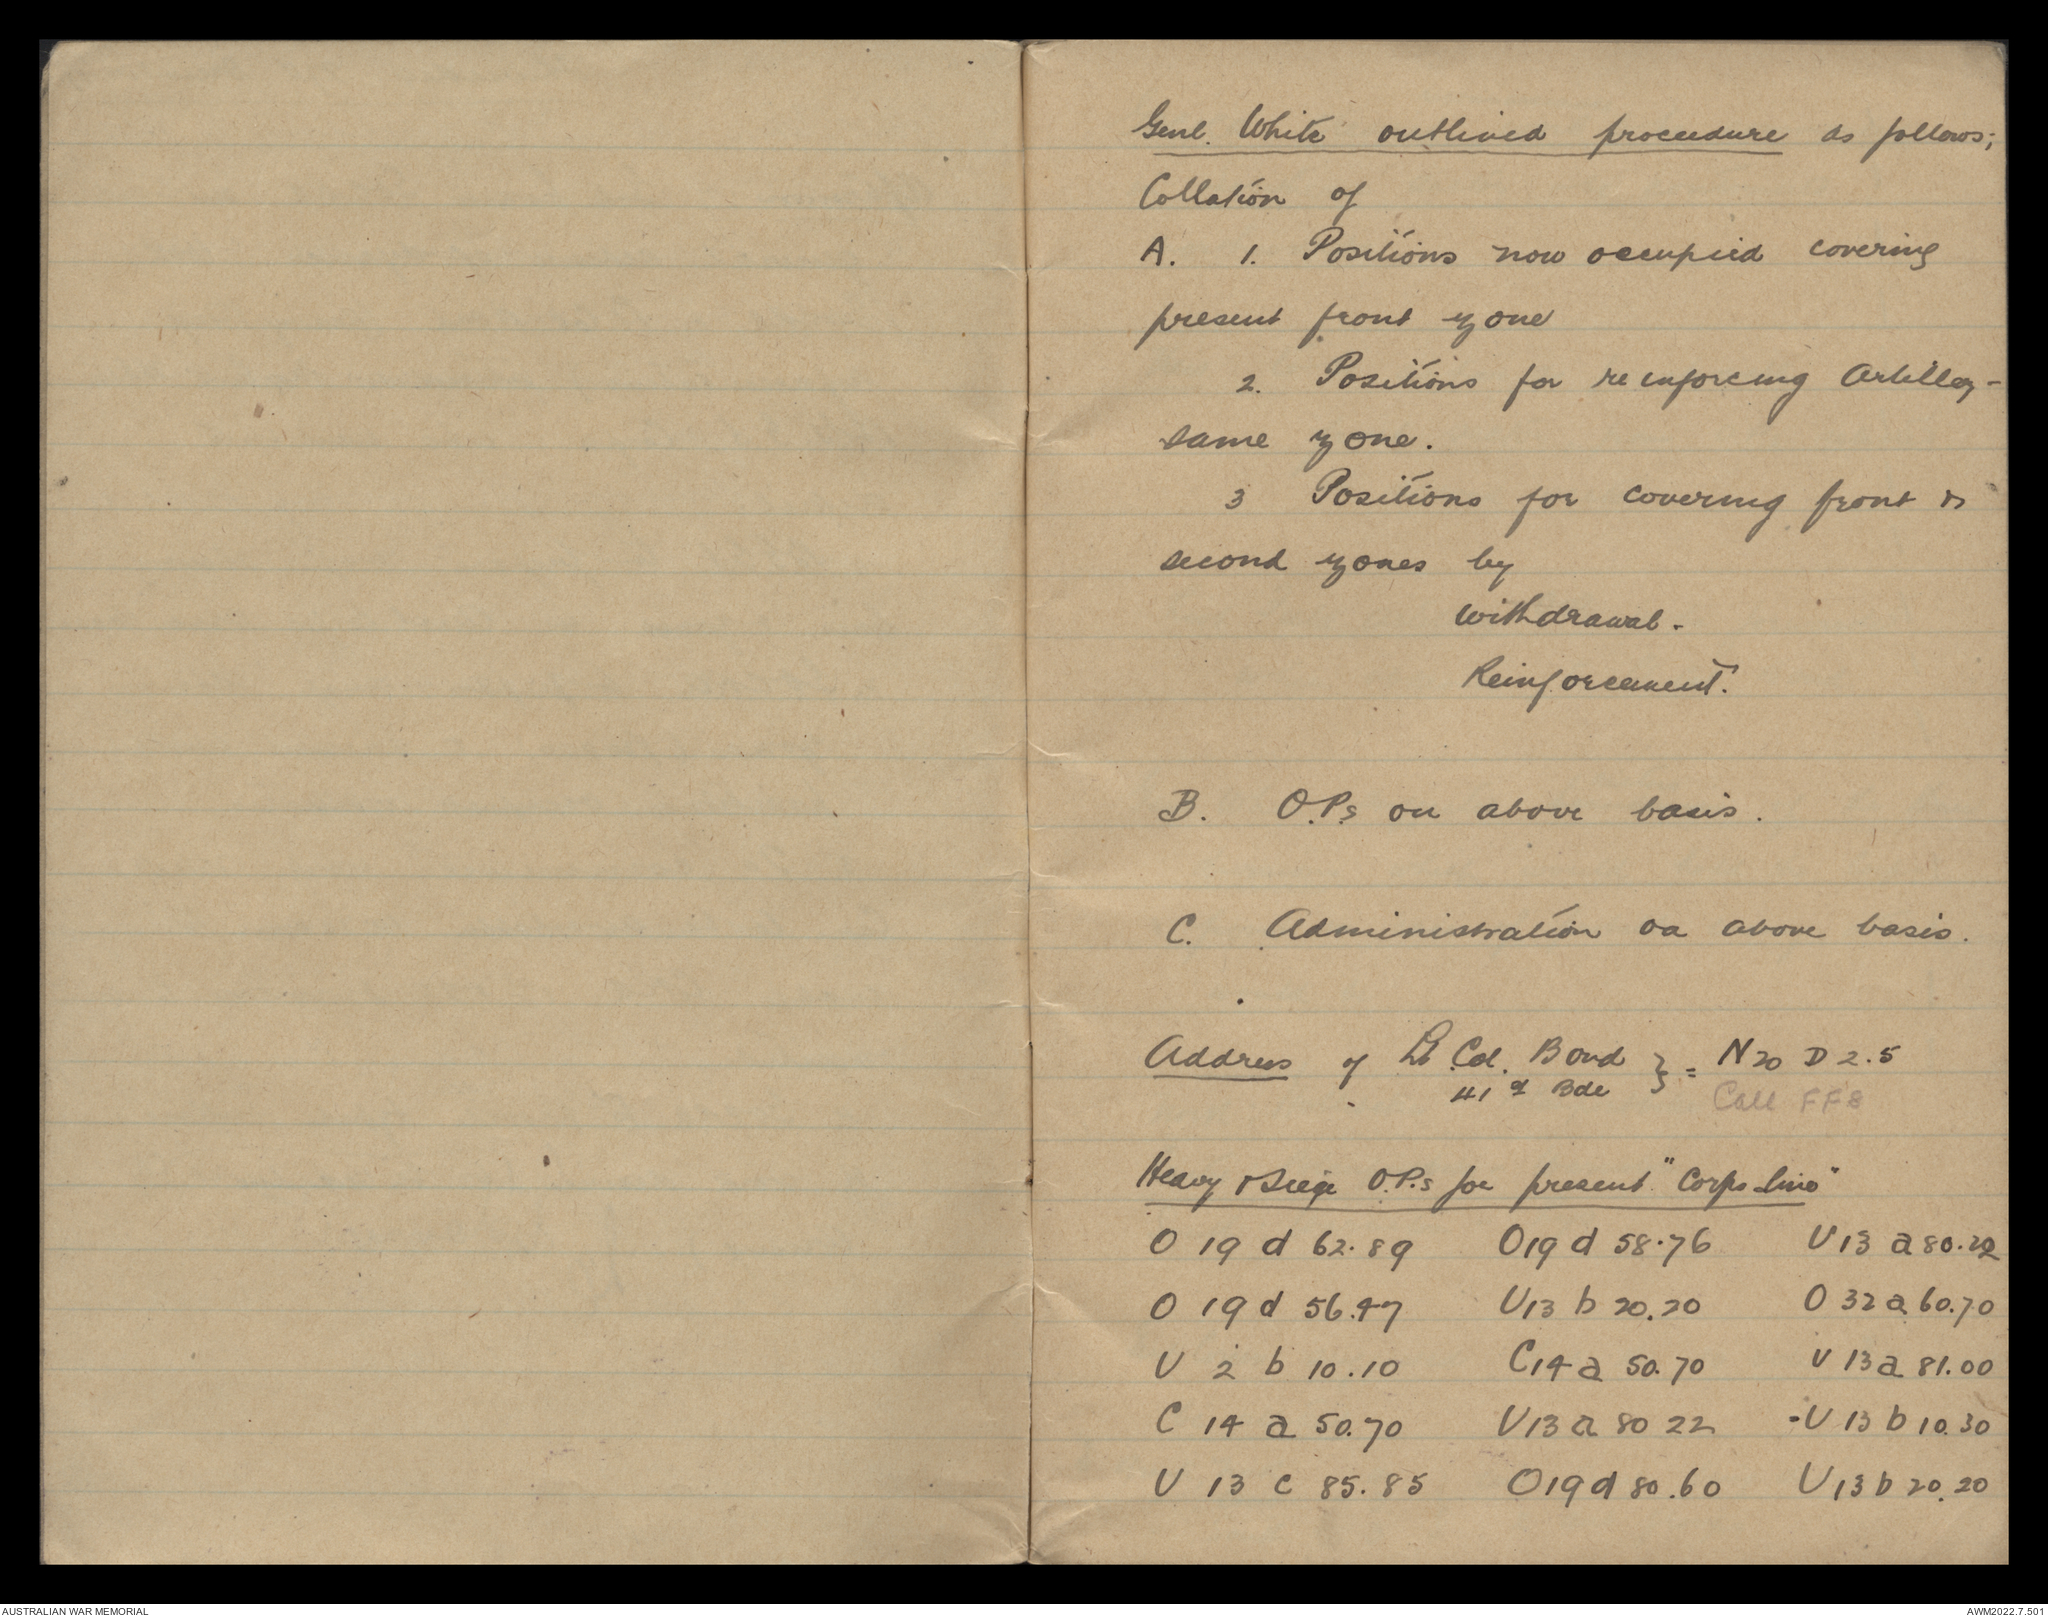 Genl. White outlined procedure as follows;
Collation of
A. 1. Positions now occupied covering
present front zone
2. Positions for reinforcing Artillery -
same zone.
3 Positions for covering front &
second zones by
withdrawal -
Reinforcement.
B. O.P.s on above basis.
C. Administration on above basis.
Address of Lt Col. Bond } = N20 D 2.5
41st Bde Call FF8
Heavy & Siege O.P.s for present "Corps Line"
O 19 d 62.89 O19 d 58.76 U13 a 80.22
O 19 d 56.47 U13 b 20.20 O 32 a 60.70
U 2 b 10.10 C14 a 50.70 U 13 a 81.00
C 14 a 50.70 U13 a 80 22 -U 13 b 10.30
U 13 c 85.85 O19 d 80.60 U13 b 20.20
AUSTRALIAN WAR MEMORIAL
AWM2022.7.501